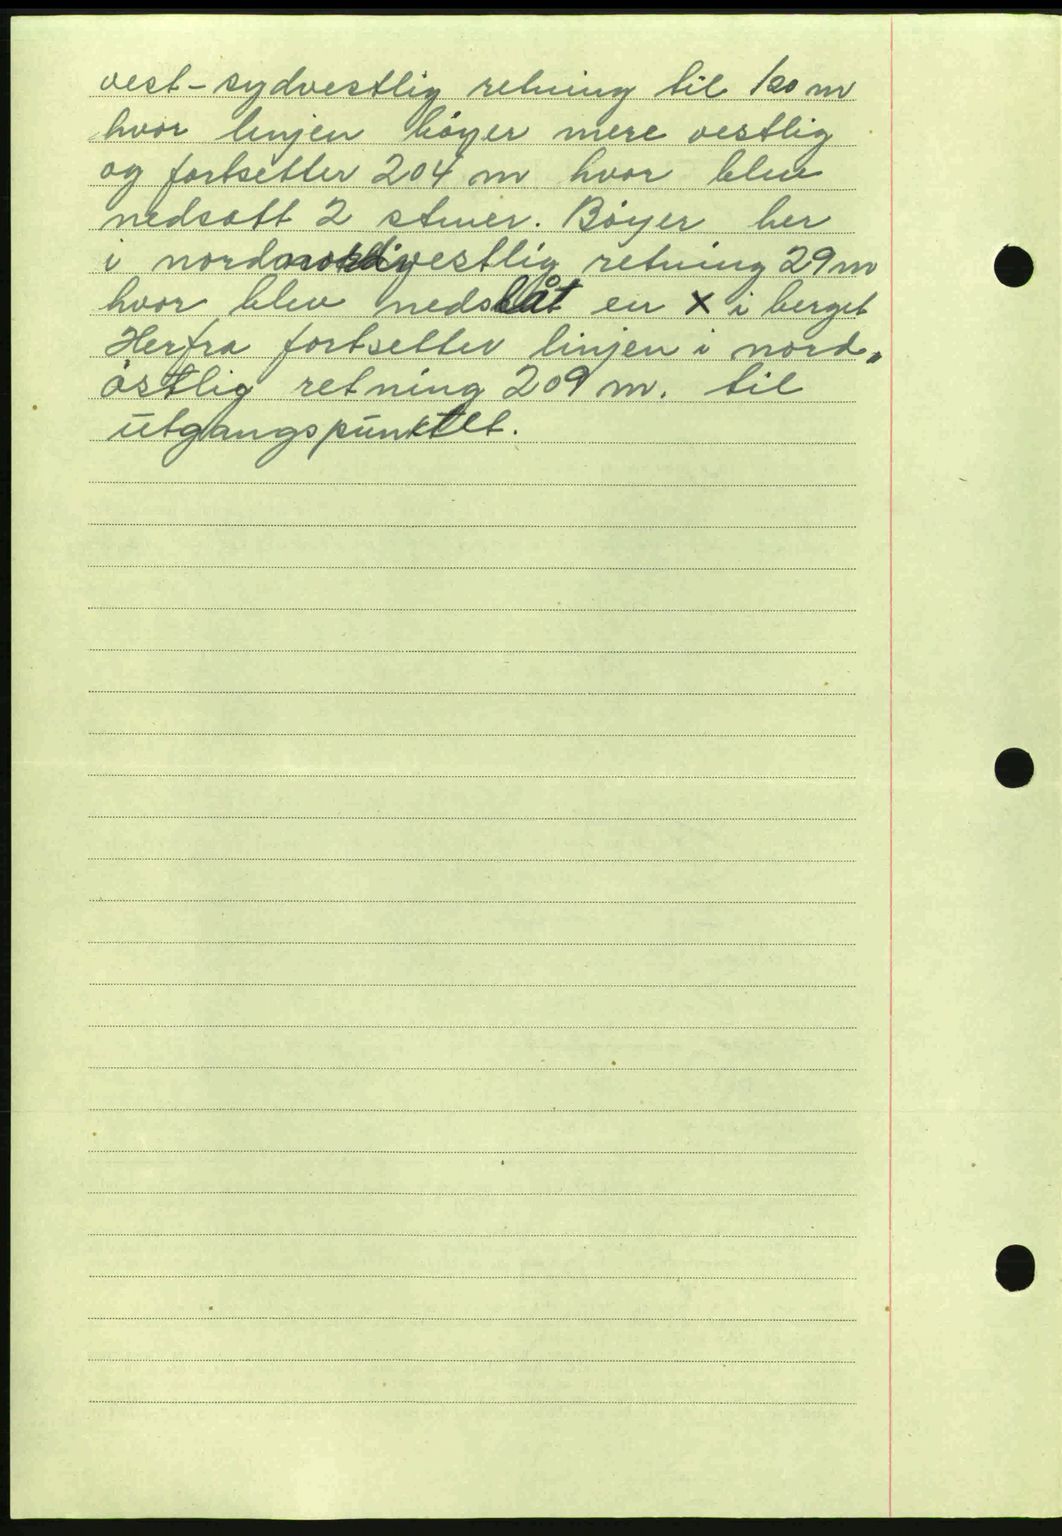 vest-sydvestlig retning til 120 m
hvor linjen böyer mere vestlig
og fortsetter 204 m hvor blev
nedsatt 2 stener. Böyer her
i nord vestlig retning 29 m
hvor blev nedslåt en X i berget
Herfra fortsetter linjen i nord„
östlig retning 209 m. til
utgangspunktet.